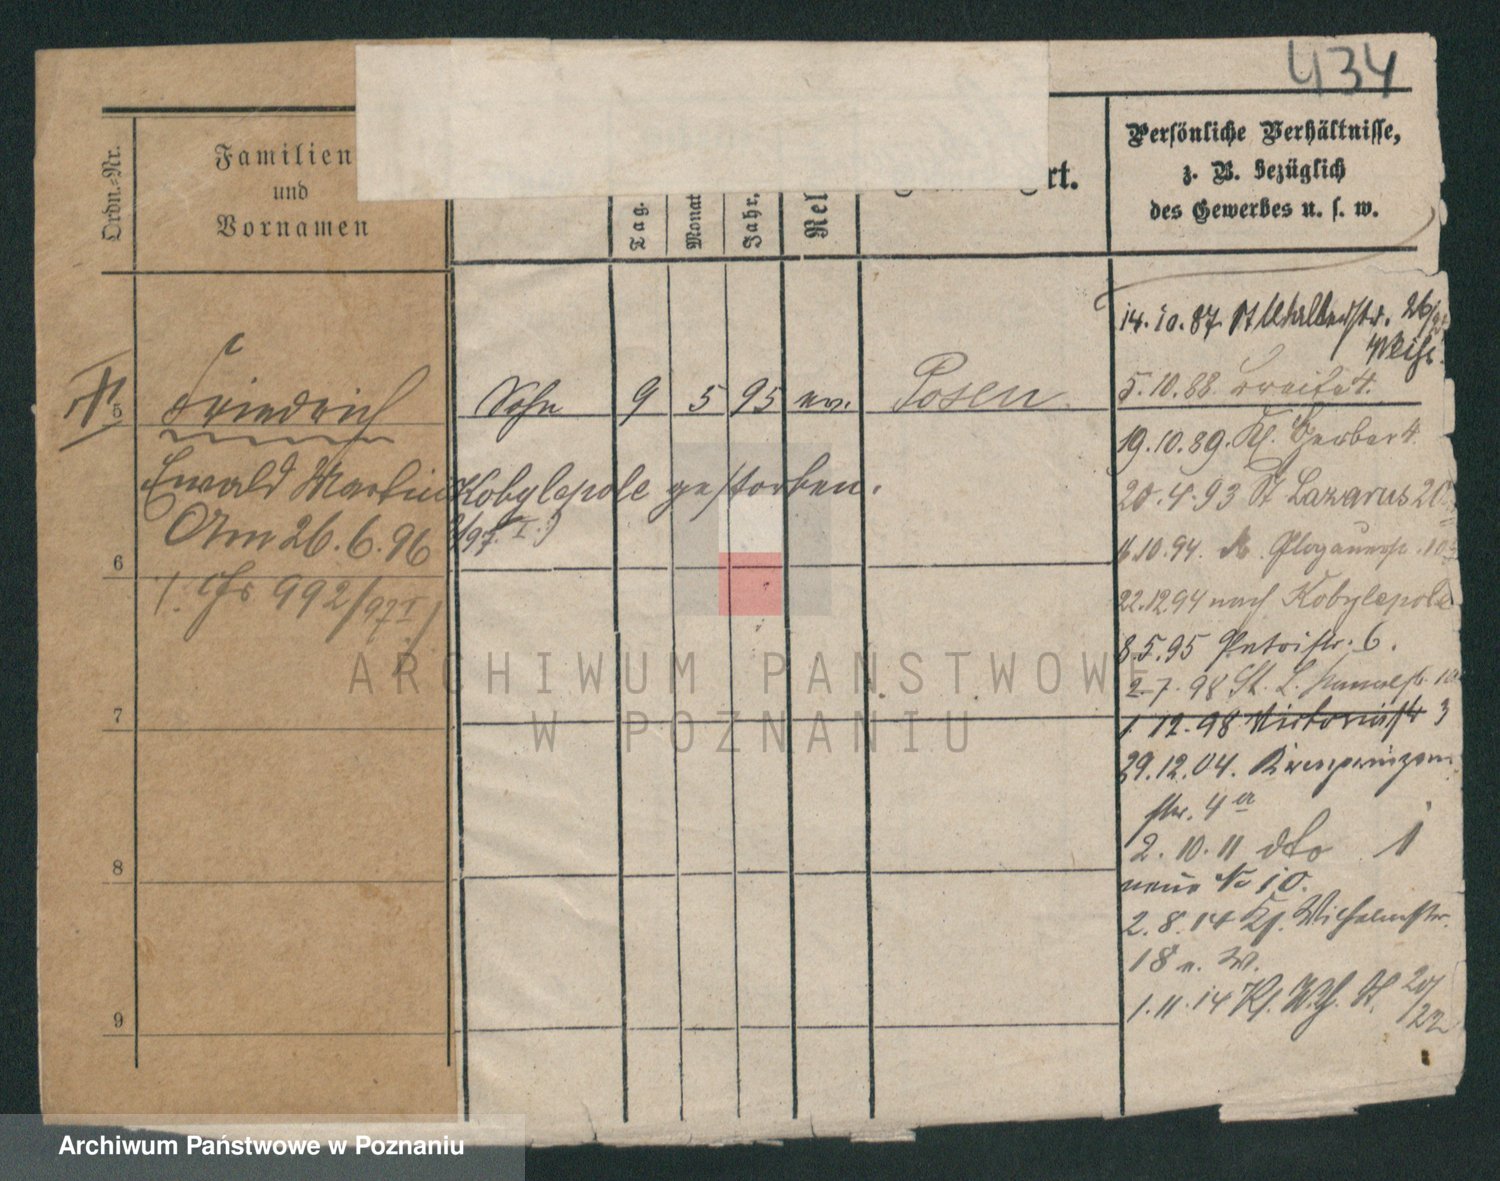 434
Ordn.=Nr.
Familien
und
Vornamen
Tag.
Monat
Jahr.
Rel
rt.
Persönliche Verhältnisse,
z. B. bezüglich
des Gewerbes u. s. w.
14.10.87. St 26
5.10.88. 4.
5 Friedrich Sohn 9 5 95 ev. Posen
19.10.89. Kl. Gerber 4.
Ewald Martin Kobylepole gestorben.
20.4.93 St Lazarus 20
Am 26.6.96
6
10.94. Glogauerstr. 10
992/97 I
22.12.94 nach Kobylepole
8.5.95 Petristr. 6.
2.7.98 St. L.
7
1.12.98 Victoriastr 3
29.12.04. Kronprinzen
str. 4a
8
2.10.11 dto 1
neue No 10.
2.8.14 Kl. Wilhelmstr.
18 n. W.
9
1.11.14 Kl. W. St. 20/22
ARCHIWUM PAŃSTWOWE
W POZNANIU
Archiwum Państwowe w Poznaniu